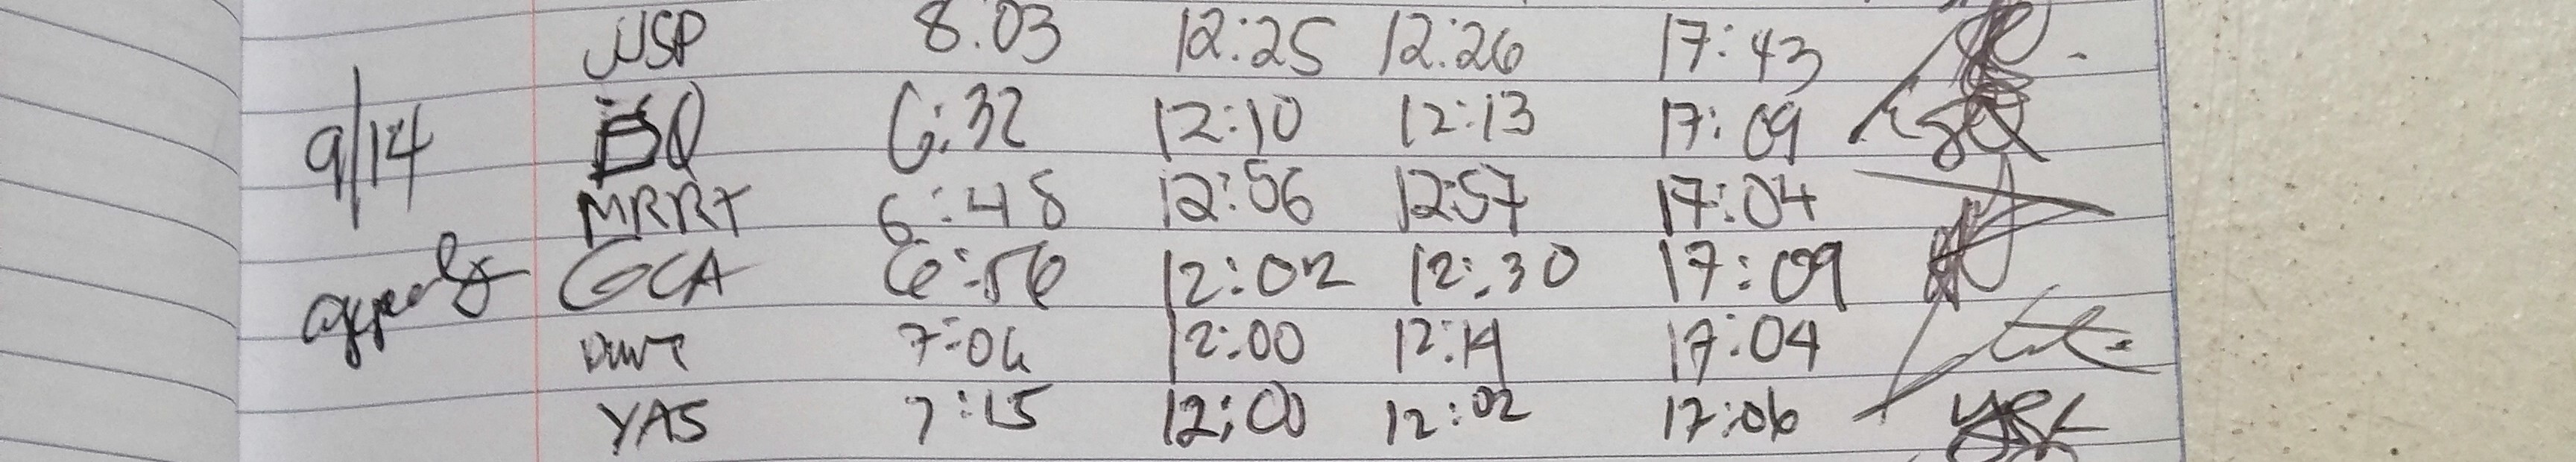 JJSP 8:03 12:25 12:26 17:43
9/14 ESQ 6:32 12:10 12:13 17:09
MRRT 6:48 12:56 12:57 17:04
GCA 6:56 12:02 12:30 17:09
7:06 12:00 12:14 17:04
YAS 7:15 12:00 12:02 17:06